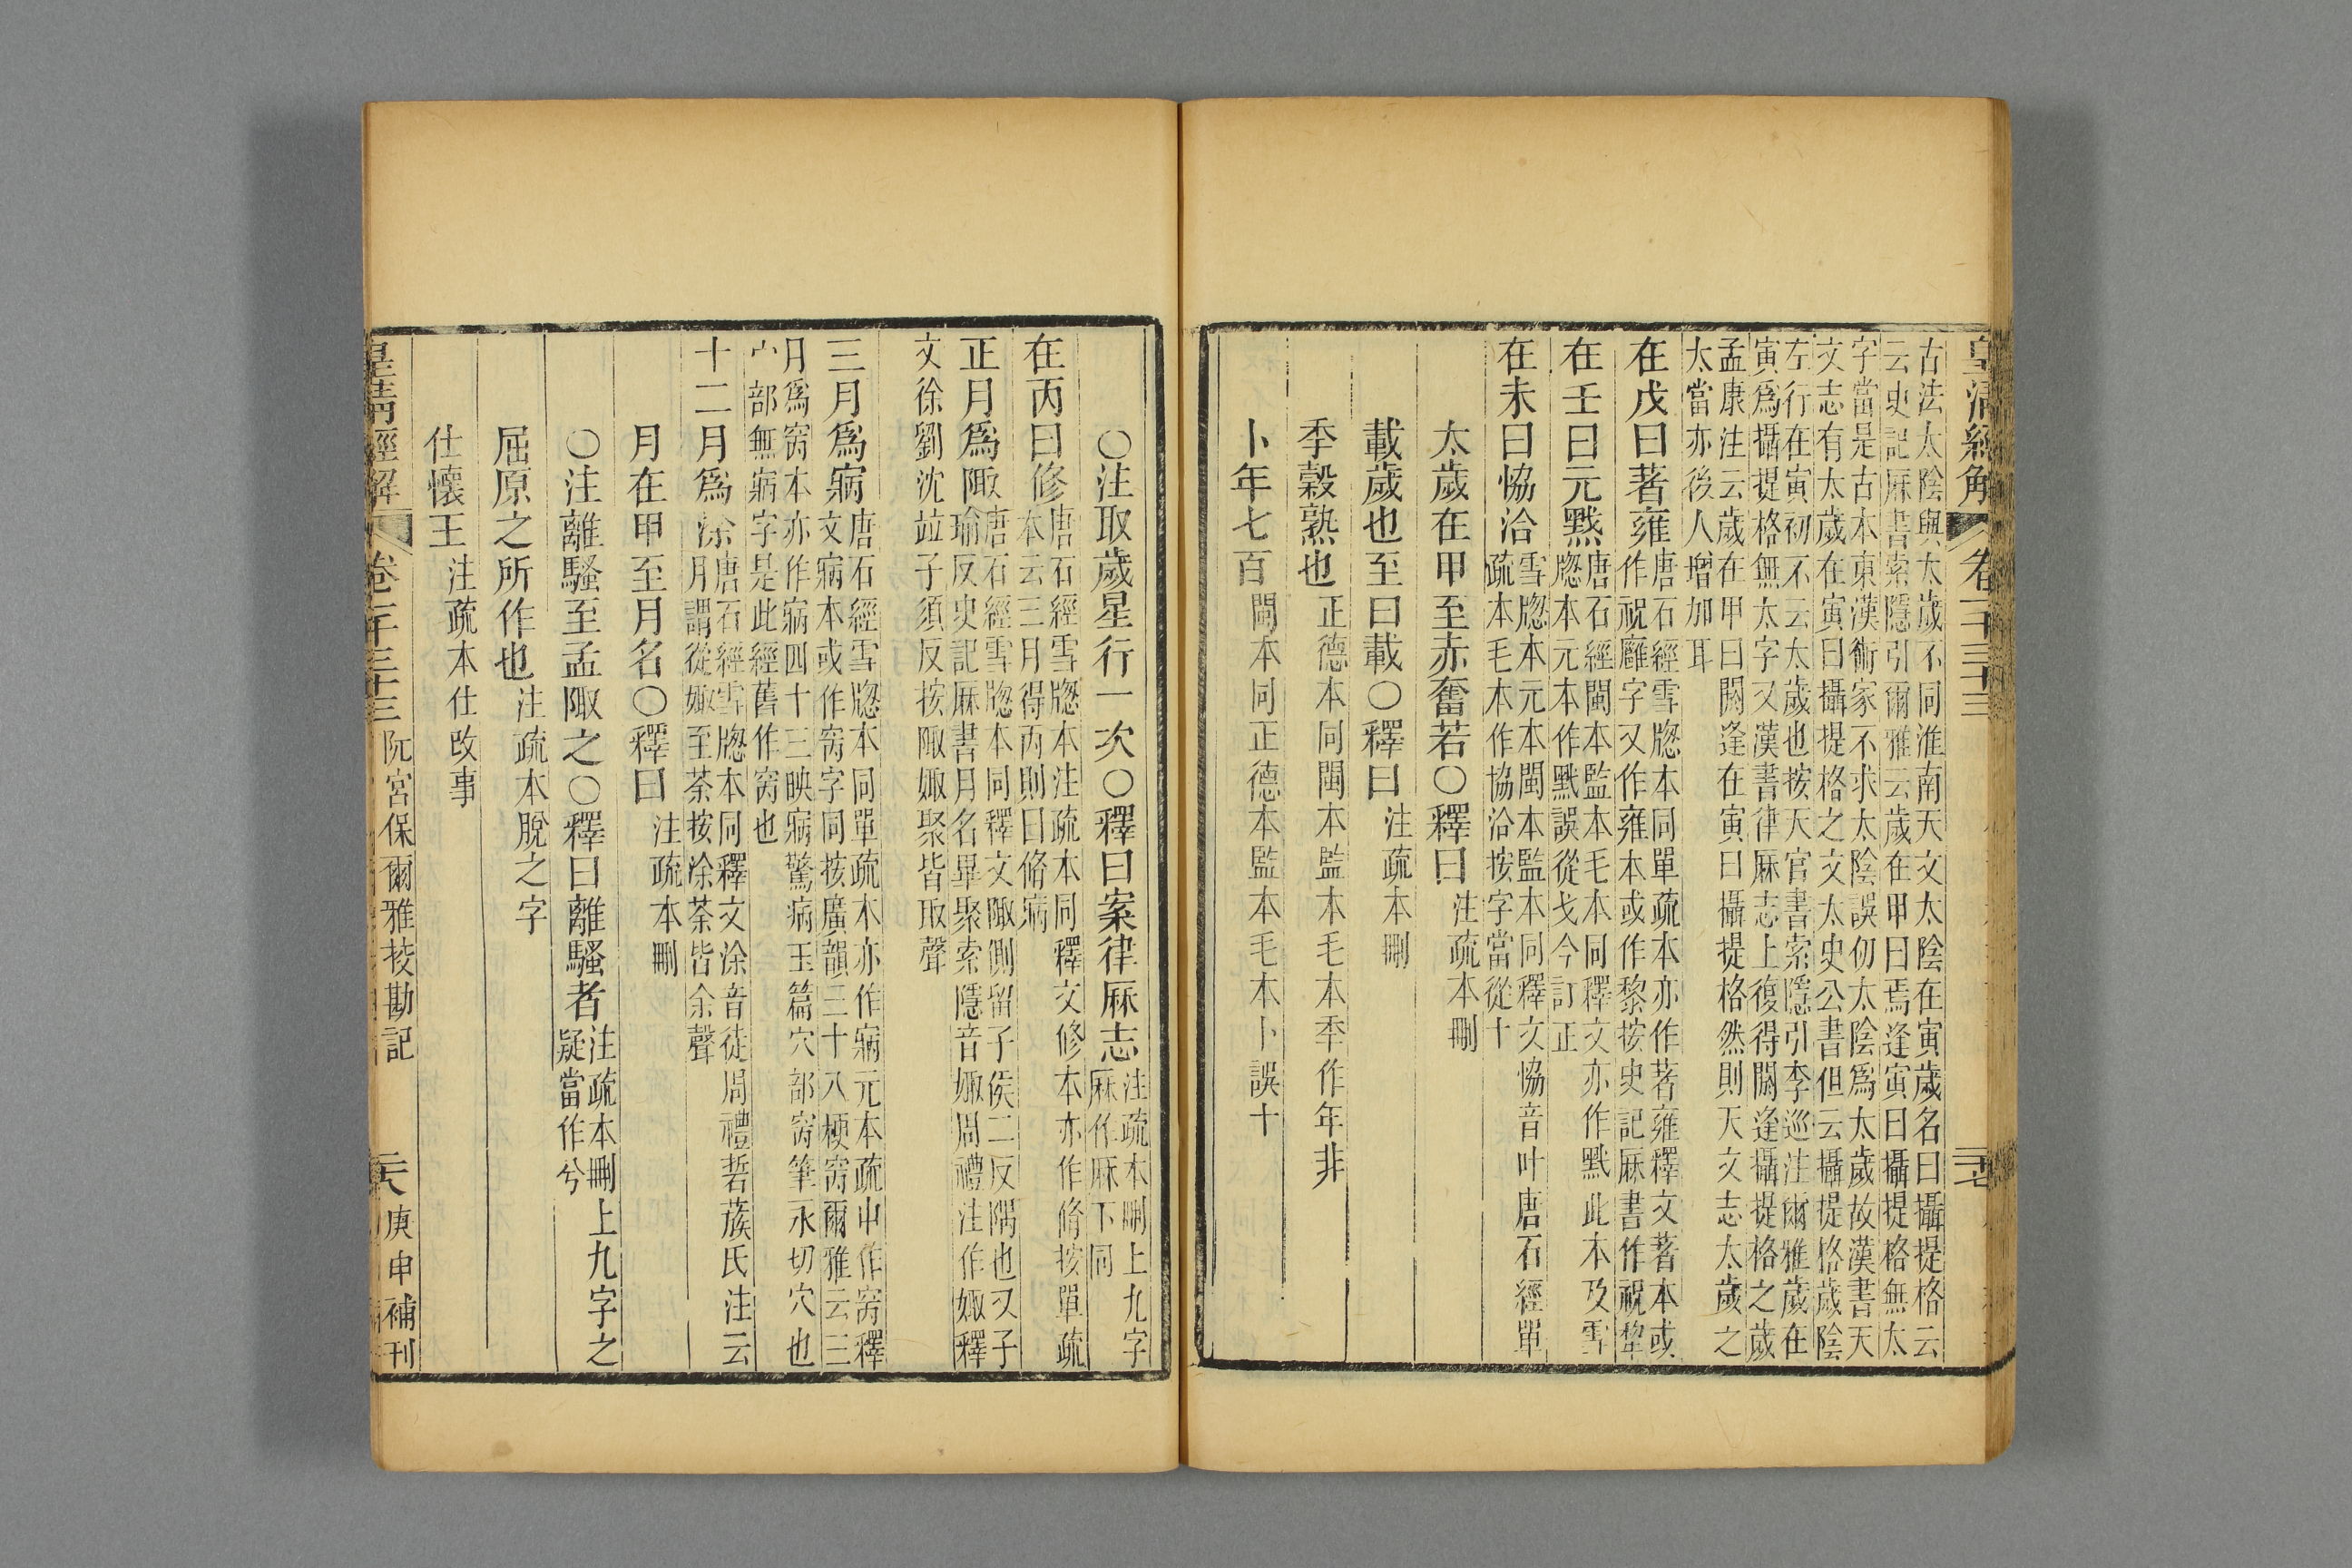 皇清經解 卷一千三十三 二十七
古法太陰與太歲不同淮南天文太陰在寅歲名曰攝提格云
云史記厤書索隱引爾雅云歲在甲曰焉逢寅曰攝提格無太
字當是古本東漢術家不求太陰誤仞太陰爲太歲故漢書天
文志有太歲在寅曰攝提格之文太史公書但云攝提格歲陰
左行在寅初不云太歲也按天官書索隱引李巡注爾雅歲在
寅爲攝提格無太字又漢書律厤志上復得閼逢攝提格之歲
孟康注云歲在甲曰閼逢在寅曰攝提格然則天文志太歲之
太當亦後人增加耳
在戊曰著雍
唐石經雪牎本同單疏本亦作著雍釋文著本或
作祝廱字又作雍本或作黎按史記厤書作祝犂
在壬曰元黓
唐石經閩本監本毛本同釋文亦作黓此本及雪
牎本元本作黓誤從戈今訂正
在未曰恊洽
雪牎本元本閩本監本同釋文恊音叶唐石經單
疏本毛本作協洽按字當從十
太歲在甲至赤奮若○釋曰
注疏本刪
載歲也至曰載○釋曰
注疏本刪
季穀熟也
正德本同閩本監本毛本季作年非
卜年七百
閩本同正德本監本毛本卜誤十
○注取歲星行一次○釋曰案律厤志
注疏本刪上九字
厤作厤下同
在丙曰修
唐石經雪牎本注疏本同釋文修本亦作脩按單疏
本云三月得丙則曰脩寎
正月爲陬
唐石經雪牎本同釋文陬側留子侯二反隅也又子
瑜反史記厤書月名畢聚索隱音娵周禮注作娵釋
文徐劉沈竝子須反按陬娵聚皆取聲
三月爲寎
唐石經雪牎本同單疏本亦作寎元本疏中作窉釋
文寎本或作窉字同按廣韻三十八梗窉爾雅云三
月爲窉本亦作寎四十三映寎驚病玉篇穴部窉筆永切穴也
宀部無寎字是此經舊作窉也
十二月爲涂
唐石經雪牎本同釋文涂音徒周禮硩蔟氏注云
月謂從娵至荼按涂荼皆余聲
月在甲至月名○釋曰
注疏本刪
○注離騷至孟陬之○釋曰離騷者
注疏本刪上九字之
疑當作兮
屈原之所作也
注疏本脫之字
仕懷王
注疏本仕改事
皇清經解 卷一千三十三 阮宮保爾雅挍勘記 二十八 庚申補刊